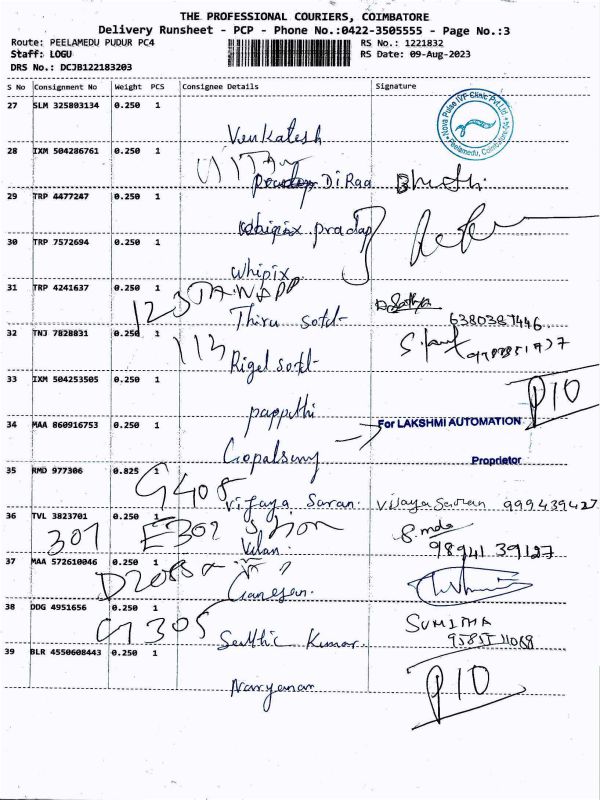 THE PROFESSIONAL COURIERS, COIMBATORE
Delivery Runsheet - PCP - Phone No.:0422-3505555 - Page No.:3
Route: PEELAMEDU PUDUR PC4
RS No.: 1221832
Staff: LOGU
RS Date: 09-Aug-2023
DRS No.: DCJB122183203
S No Consignment No Weight PCS Consignee Details Signature
27 SLM 325803134 0.250 1
Nova Pulse IVF Clinic Pvt.Ltd
Peelamedu, Coimbatore
Venkatesh
28 IXM 504286761 0.250 1
DiRaa
29 TRP 4477247 0.250 1
pradap
30 TRP 7572694 0.250 1
Whipix
31 TRP 4241637 0.250 1
123
Thiru
32 TNJ 7828831 0.250 1
113
Rigel
33 IXM 504253505 0.250 1
P10
pappithi
34 MAA 860916753 0.250 1
For LAKSHMI AUTOMATION
Proprietor
35 RMD 977306 0.825 1
G408
Vijaya Saran
36 TVL 3823701 0.250 1
307 E302
98941 39127
37 MAA 572610046 0.250 1
Ganesan.
38 DDG 4951656 0.250 1
G305
SUMITHA
Kumar.
39 BLR 4550608443 0.250 1
P10
Naryanan